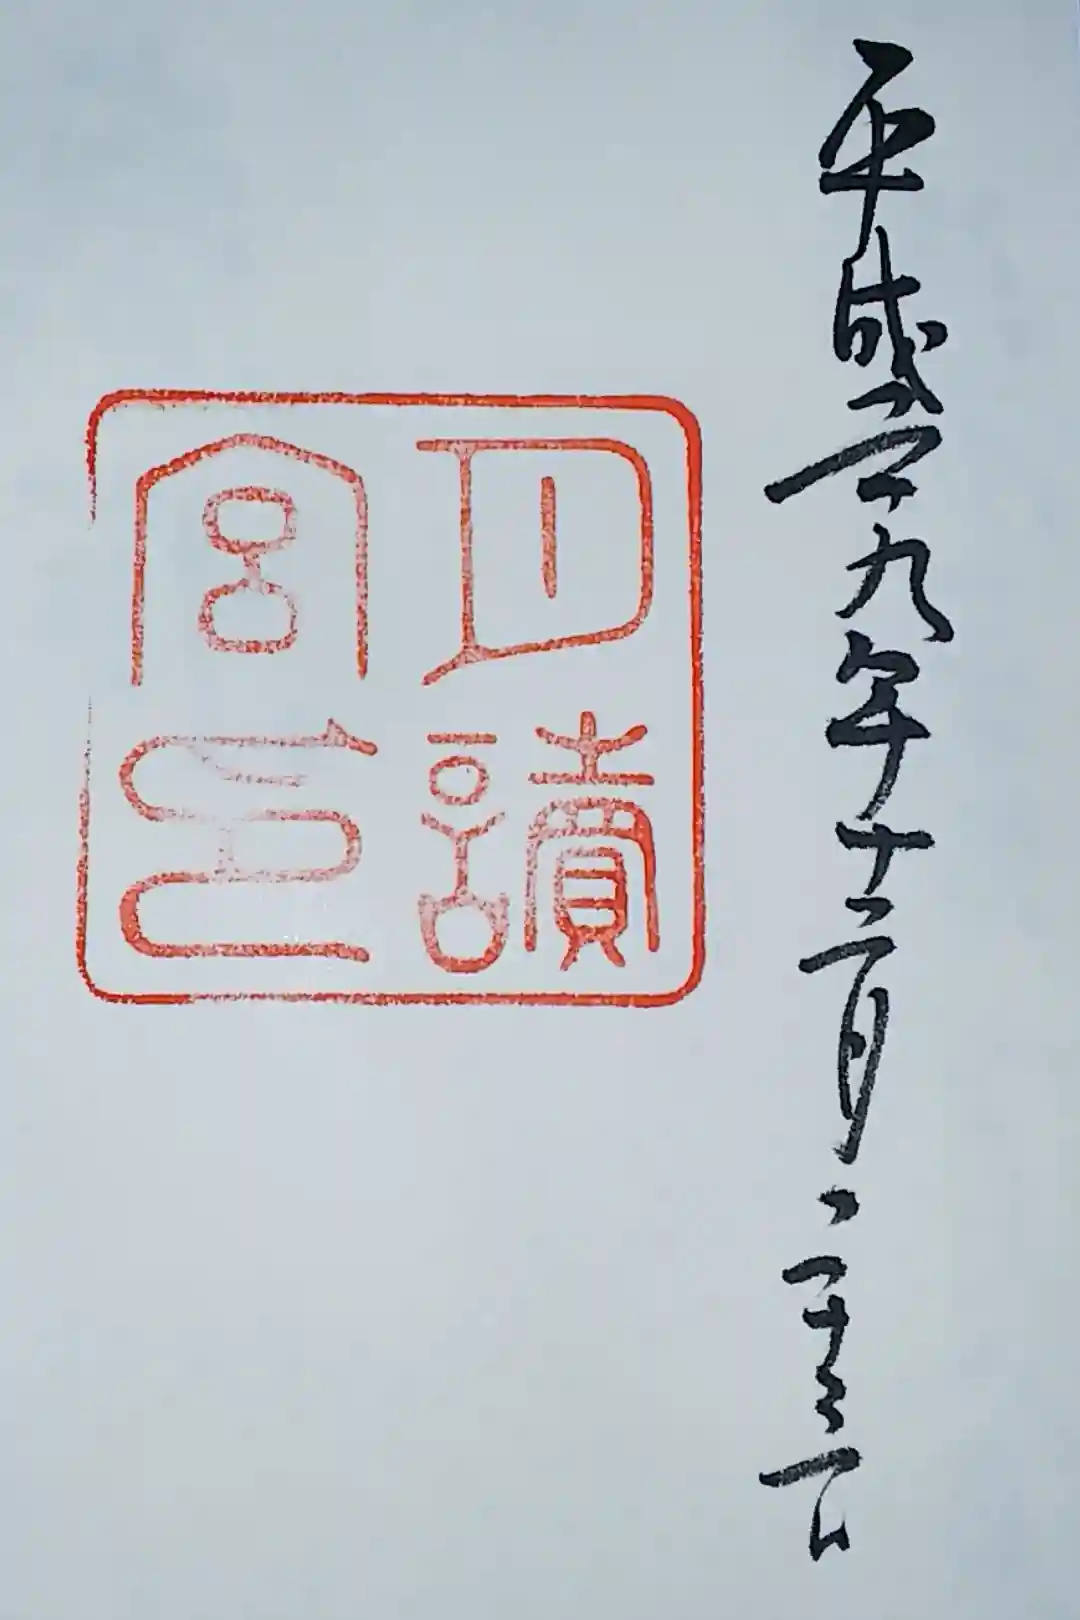 平成二十九年十二月二十三日
月讀
宮印